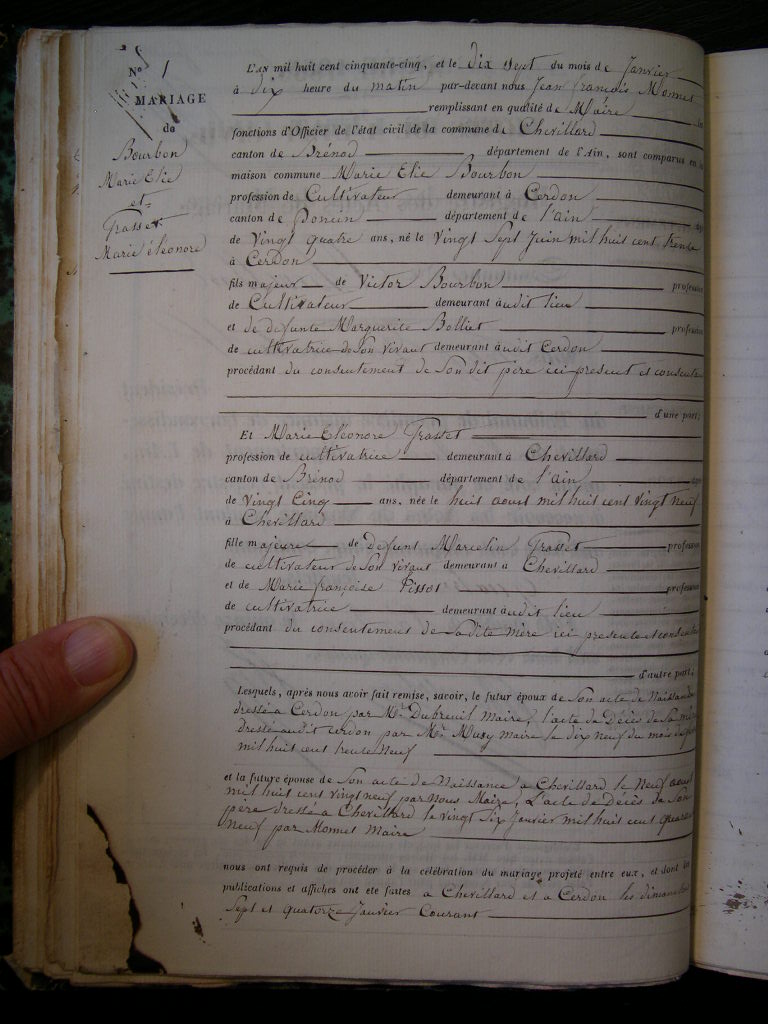 No 1
MARIAGE
de
Bourbon
Marie Elie
et
Grasset
Marie éléonore
L'AN mil huit cent cinquante-cinq, et le dix sept du mois de Janvier
à dix heure du matin par-devant nous Jean françois Monnet
remplissant en qualité de Maire
fonctions d'Officier de l'état civil de la commune de Chevillard
canton de Brénod département de l'Ain, sont comparus en
maison commune Marie Elie Bourbon
profession de Cultivateur demeurant à Cerdon
canton de Poncin département de l'ain
de Vingt quatre ans, né le Vingt Sept Juin mil huit cent trente
à Cerdon
fils majeur de Victor Bourbon profession
de Cultivateur demeurant audit lieu
et de defunte Marguerite Bolliet profession
de cultivatrice de Son Vivant demeurant audit Cerdon
procédant du consentement de Son dit père ici présent et consentant
d'une part;
Et Marie Eléonore Grasset
profession de cultivatrice demeurant à Chevillard
canton de Brénod département de l'ain
de vingt Cinq ans, née le huit aout mil huit cent vingt neuf
à Chevillard
fille majeure de Defunt Marcelin Grasset profession
de cultivateur de Son vivant demeurant à Chevillard
et de Marie françoise Pissot profession
de cultivatrice demeurant audit lieu
procédant du consentement de Sa dite mère ici presente et consentante
d'autre part;
Lesquels, après nous avoir fait remise, savoir, le futur époux de Son acte de Naissance
dressé a Cerdon par Mr Dubreuil Maire, l'acte de Décès de Sa mère
dressé audit cerdon par Mr Musy Maire le dix neuf du mois de
mil huit cent trente Neuf
et la future épouse de Son acte de Naissance a Chevillard le Neuf aout
mil huit cent vingt neuf par Nous Maire, L'acte de Décès de Son
père dressé a Chevillard le vingt Six Janvier mil huit cent quarante
Neuf par Monnet Maire
nous ont requis de procéder à la célébration du mariage projeté entre eux, et dont les
publications et affiches ont ete faites a Chevillard et a Cerdon les dimanches
Sept et quatorze Janvier Courant